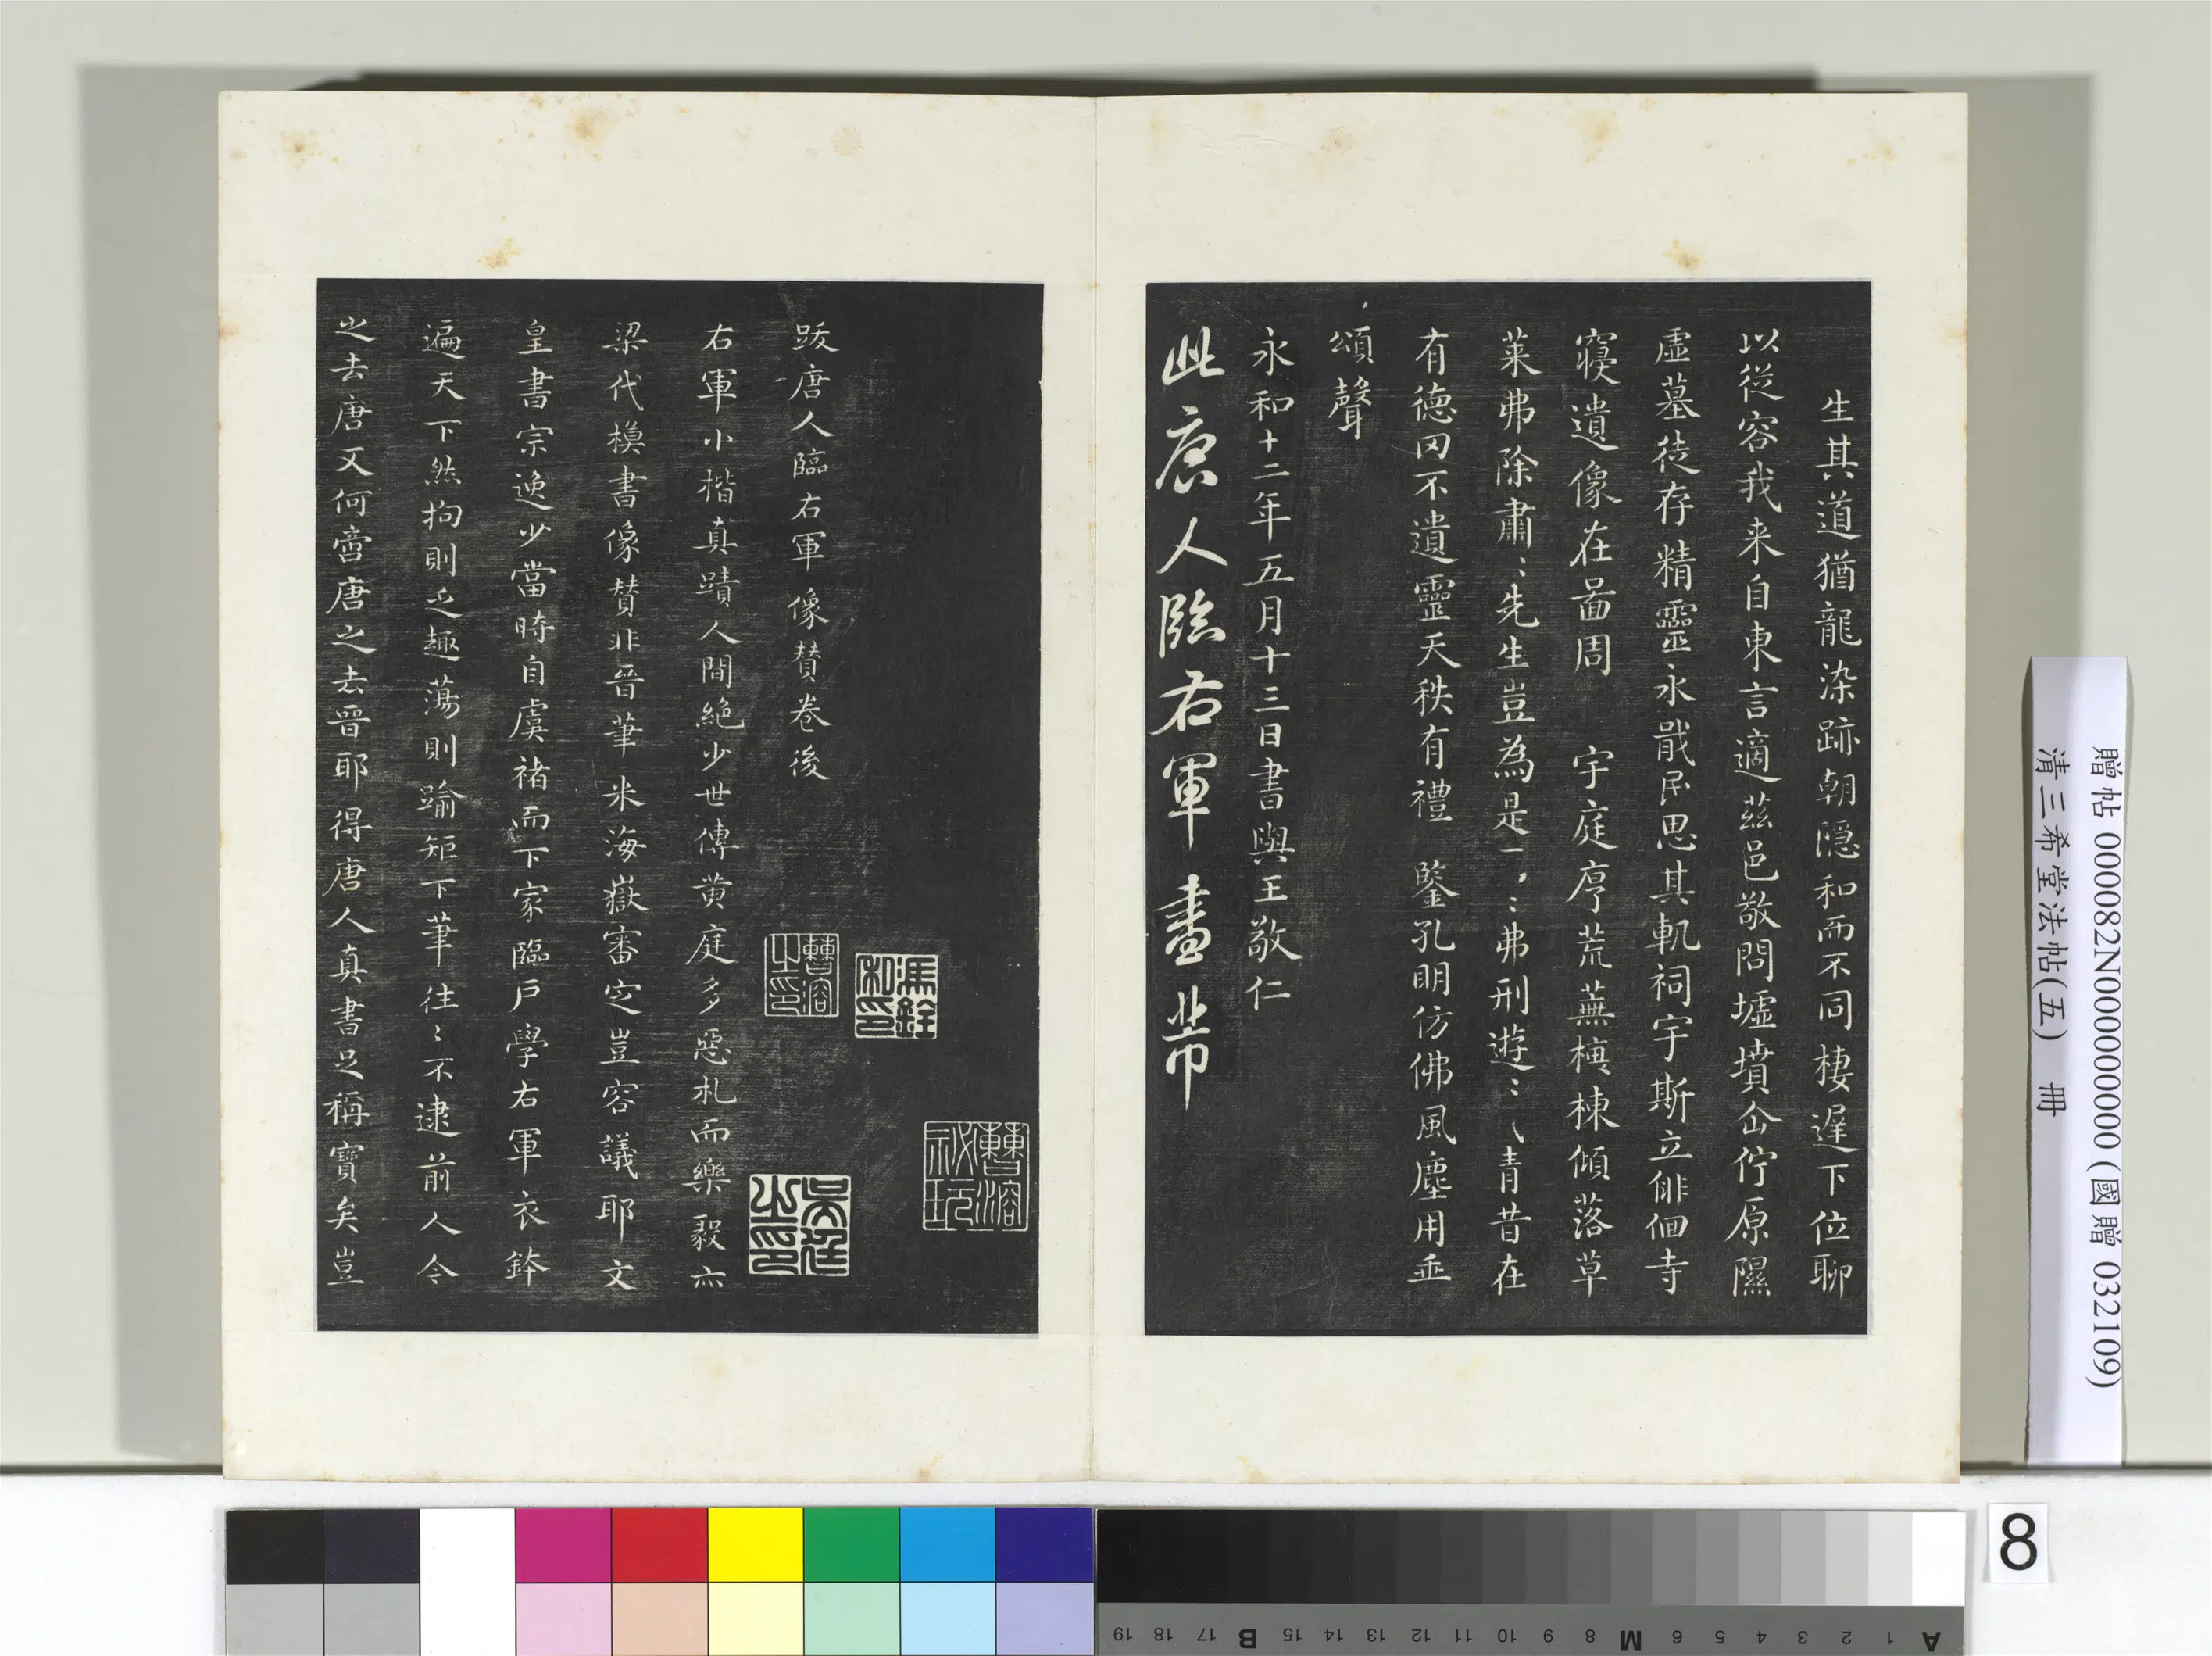 生其道猶龍染跡朝隱和而不同棲遲下位聊
以從容我來自東言適茲邑敬問墟墳企佇原隰
虛墓徒存精靈永戢民思其軌祠宇斯立徘徊寺
寢遺像在啚周 宇庭序荒蕪榱棟傾落草
萊弗除肅〻先生豈焉是〻〻弗刑遊〻〻青昔在
有德罔不遺靈天秩有禮 鑒孔明仿佛風塵用垂
頌聲
永和十二年五月十三日書與王敬仁
此唐人臨右軍畫
跋唐人臨右軍像贊卷後
右軍小楷真蹟人間絕少世傳黃庭多惡札而樂毅亦
梁代模書像贊非晉筆米海嶽審定豈容議耶文
皇書宗逸少當時自虞褚而下家臨戶學右軍衣鉢
遍天下然拘則乏趣蕩則踰矩下筆往〻不逮前人今
之去唐又何啻唐之去晉耶得唐人真書足稱寶矣豈
馮銓私印
曹溶之印
曹溶祕玩
吳廷之印
贈帖 000082N000000000 (國贈 032109)
清三希堂法帖(五) 冊
8
A 1 2 3 4 5 6 M 8 9 10 11 12 13 14 15 B 17 18 19